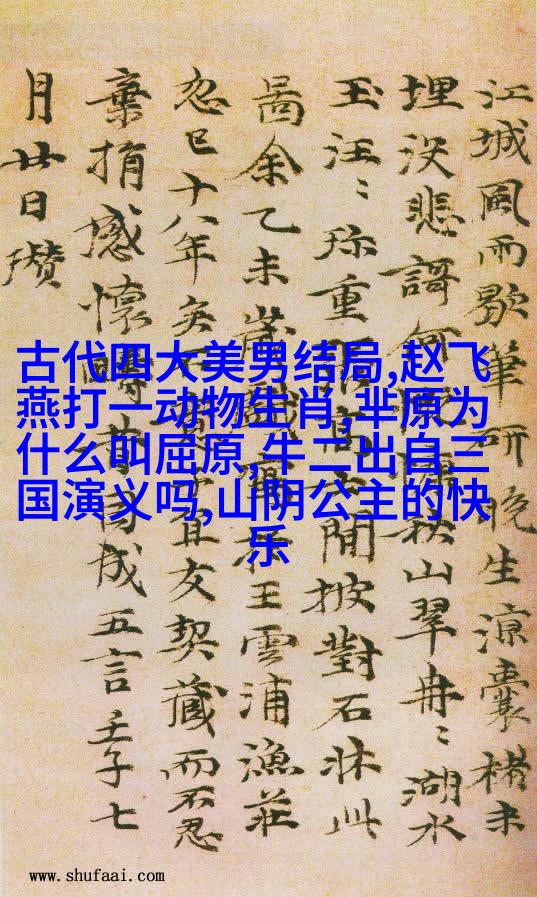 江城風雨歇筆研晚生涼囊楮未
埋没悲謌何山翠冉〻湖水
玉汪〻珎重閒披對石牀此
啚余乙未歲王雲浦漁莊
忽已十八年矣宜友契藏而不忍
棄捐感懷疇昔因成五言壬子七
月廿日瓚
古代四大美男结局,赵飞
燕打一动物生肖,芈原为
什么叫屈原,牛二出自三
国演义吗,山阴公主的快
乐
www.shufaai.com